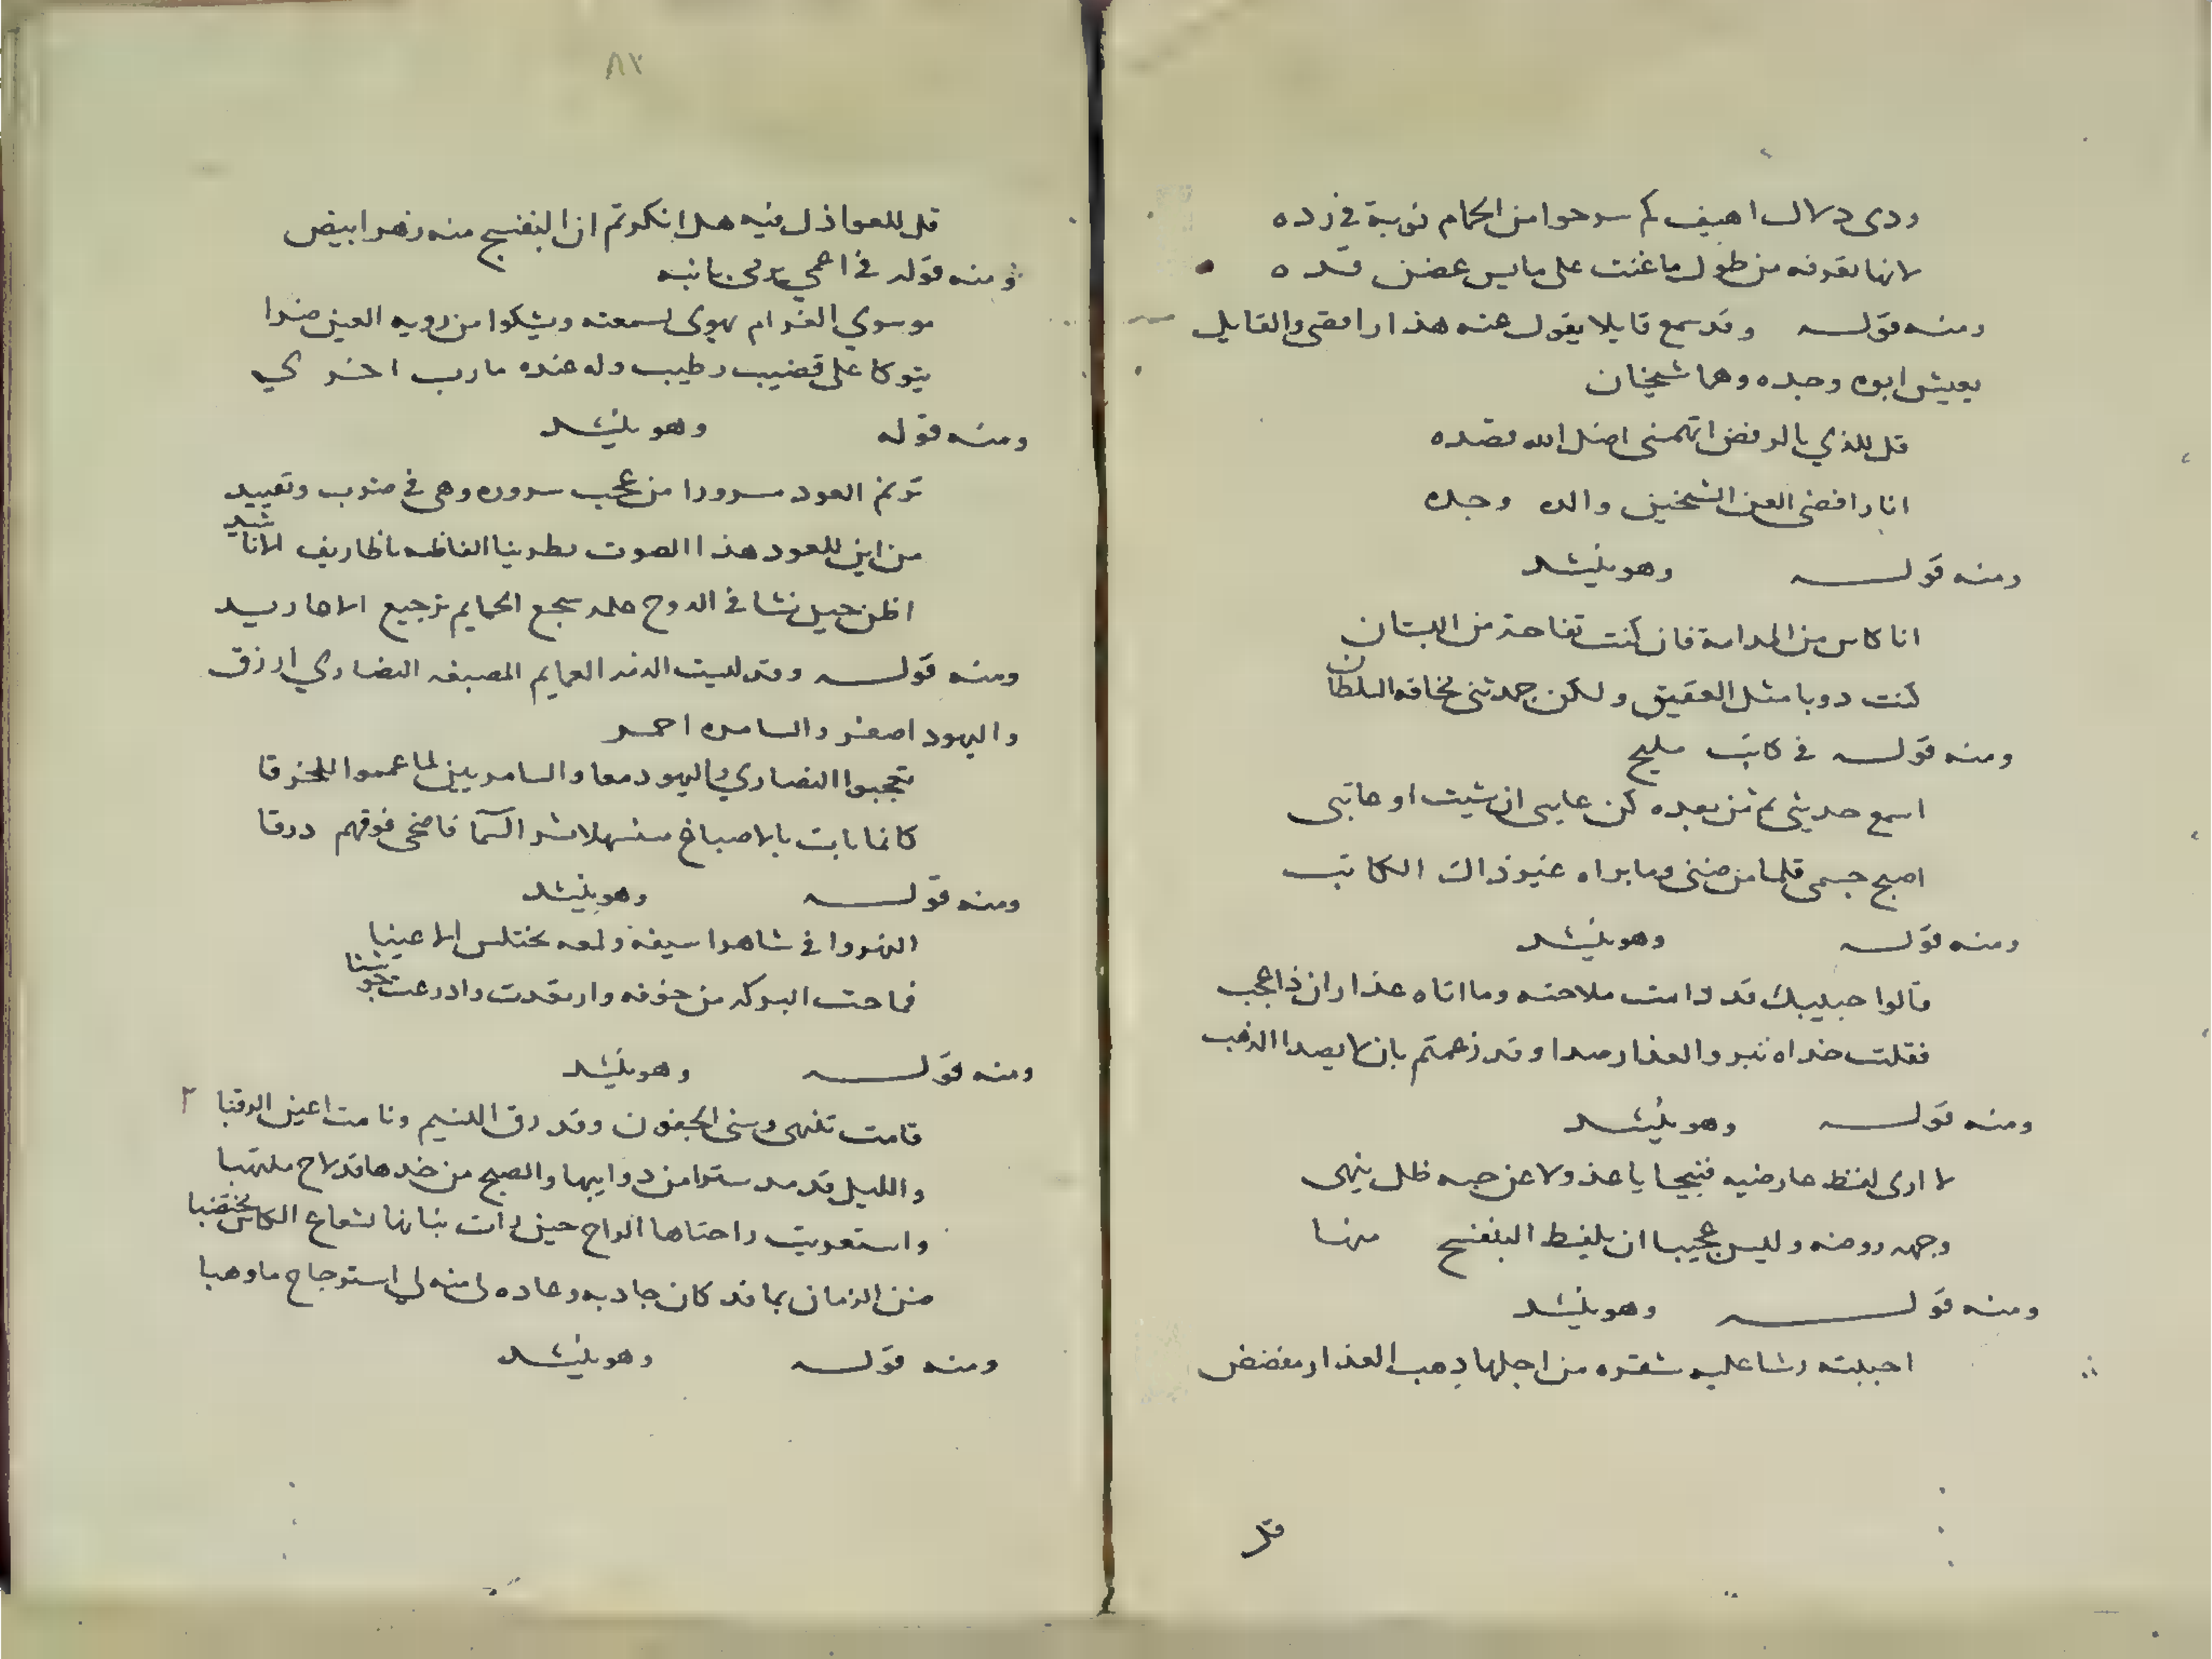 ودى دلال اهيف كم سوحوا من الحمام نوبة في زده
لانها تعرفه من طول ما غنت على مايس غصن قده
ومنه قوله وقد سمع قايلا يقول عنه هذا رافضى والقايل
يعيش ابوه وجده وهما شيخان
قل للذي بالرفض اتهمنى اضل الله قصده
انا رافضى العن الشيخين والده وجده
ومنه قوله وهو ينشد
انا كاس من المدامة فان كنت تفاحة من البستان
كنت دوبا مثل العقيق ولكن جمدتنى مخافه السلطان
ومنه قوله في كاتب مليح
اسمع حديثى ثم من بعده كن عايبى ان شيت او عاتبى
اصبح جسمى قلما من ضنى وما براه غير ذاك الكاتب
ومنه قوله وهو ينشد
قالوا حبيبك قد دامت ملاحته وما اتاه عذار ان ذا عجب
فقلت خداه تبر والعذار صدا وقد زعمتم بان لا يصدا الذهب
ومنه قوله وهو ينشد
لا ارى لفظ عارضيه قبيحا يا عذولا عن حبه ظل ينهى
وجهه روضه وليس عجيبا ان يلفظ البنفسج منها
ومنه قوله وهو ينشد
احببته رشا عليه شقره من اجلها ذهب العذار مفضض
قل
٨٢
قل للعواذل فيه هل انكرتم ان البنفسج منه زهر ابيض
ومنه قوله في اعمي
موسوي الغرام يهوى لسمعته ويشكوا من رويه العين ضرا
يتوكا على قضيب رطيب وله عنده مارب اخري
ومنه قوله وهو ينشد
ترنم العود مسرورا من عجب سروره وهى في ضرب وتقييد
من اين للعود هذا الصوت يطربنا الفاظه باظاريف الاناشيد
اظن حين نشا في الدوح علمه سجع الحمايم ترجيع الاغاريد
ومنه قوله وقد لبست الذمه العمايم المصبغه النصاري ازرق
واليهود اصفر والسامره احمر
تعجبوا النصاري واليهود معا والسامريين لما عمموا الخرقا
كانما بات بالاصباغ منسهلا نسر السما فاضحى فوقهم درقا
ومنه قوله وهو ينشد
النهر وافي شاهرا سيفه ولمعه يختلس الاعينا
فماحت البركه من خوفه وارتعدت وادرعت جوشنا
ومنه قوله وهو ينشد
قامت تفهى وسنى الجفون وقد رق النسيم ونامت اعين الرقبا ٢
والليل قد مد سترا من دوايبها والصبح من خدها قد لاح ملتهبا
واستعربت راحتاها الراح حين رات بنانها لشعاع الكاس مختضبا
ضنن الزمان بما قد كان جاد به وعاده لى منه لى استرجاع ما وهبا
ومنه قوله وهو ينشد